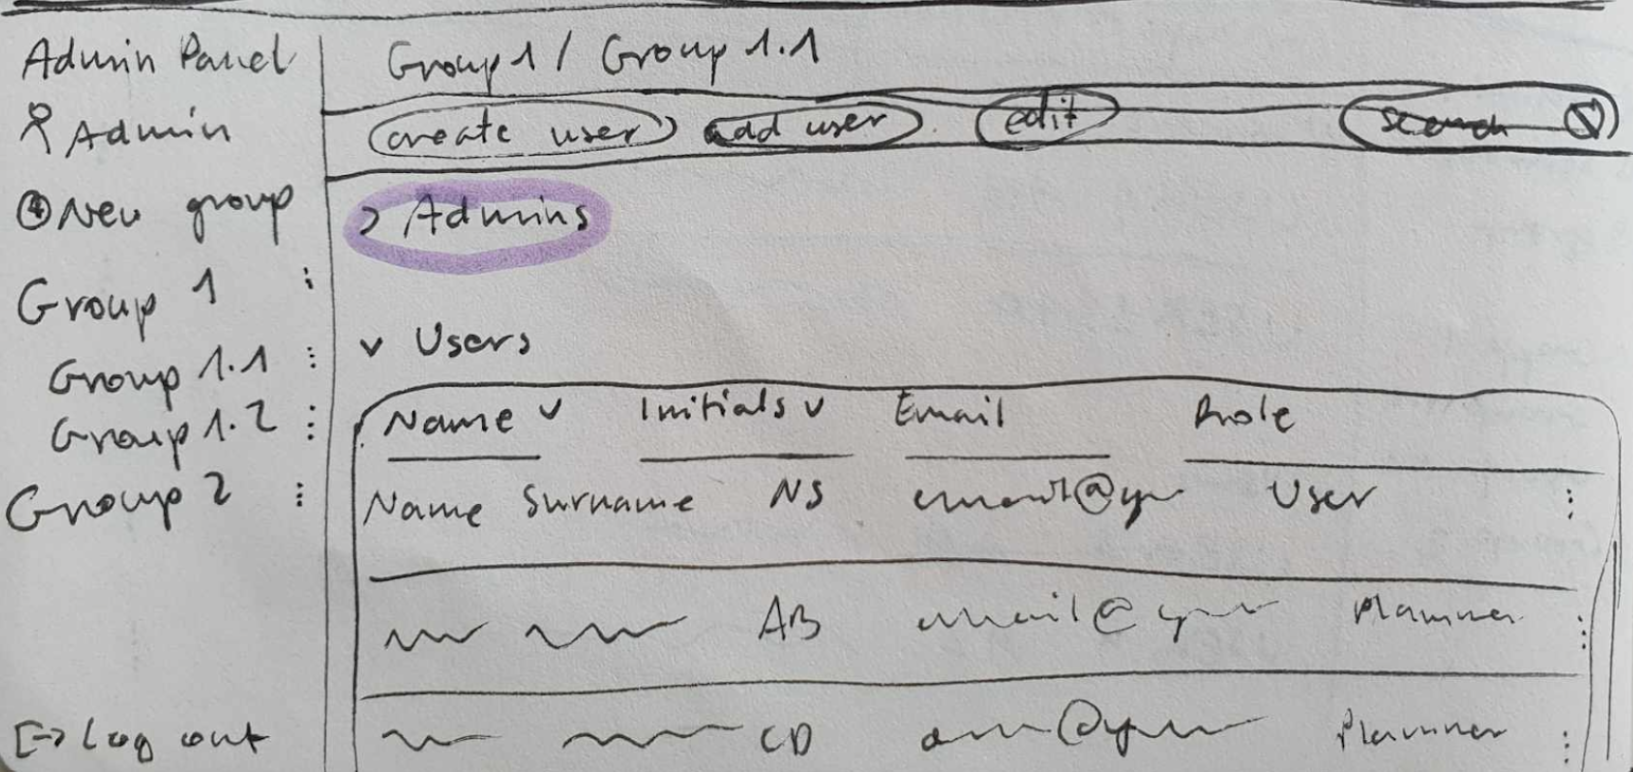 Admin Panel
Admin
New group
Group 1
Group 1.1
Group 1.2
Group 2
Log out
Group 1 / Group 1.1
create user add user edit search
> Admins
v Users
Name v Initials v Email Role
Name Surname NS email@ User
AB email@ Planner
CD @ Planner